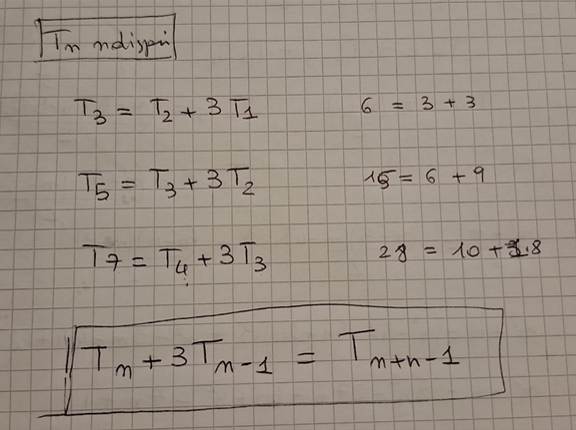 Tn ndispri
T₃ = T₂ + 3T₁ 6 = 3 + 3
T₅ = T₃ + 3T₂ 15 = 6 + 9
T₇ = T₄ + 3T₃ 28 = 10 + .8
Tₙ + 3Tₙ₋₁ = Tₙ₊ₙ₋₁